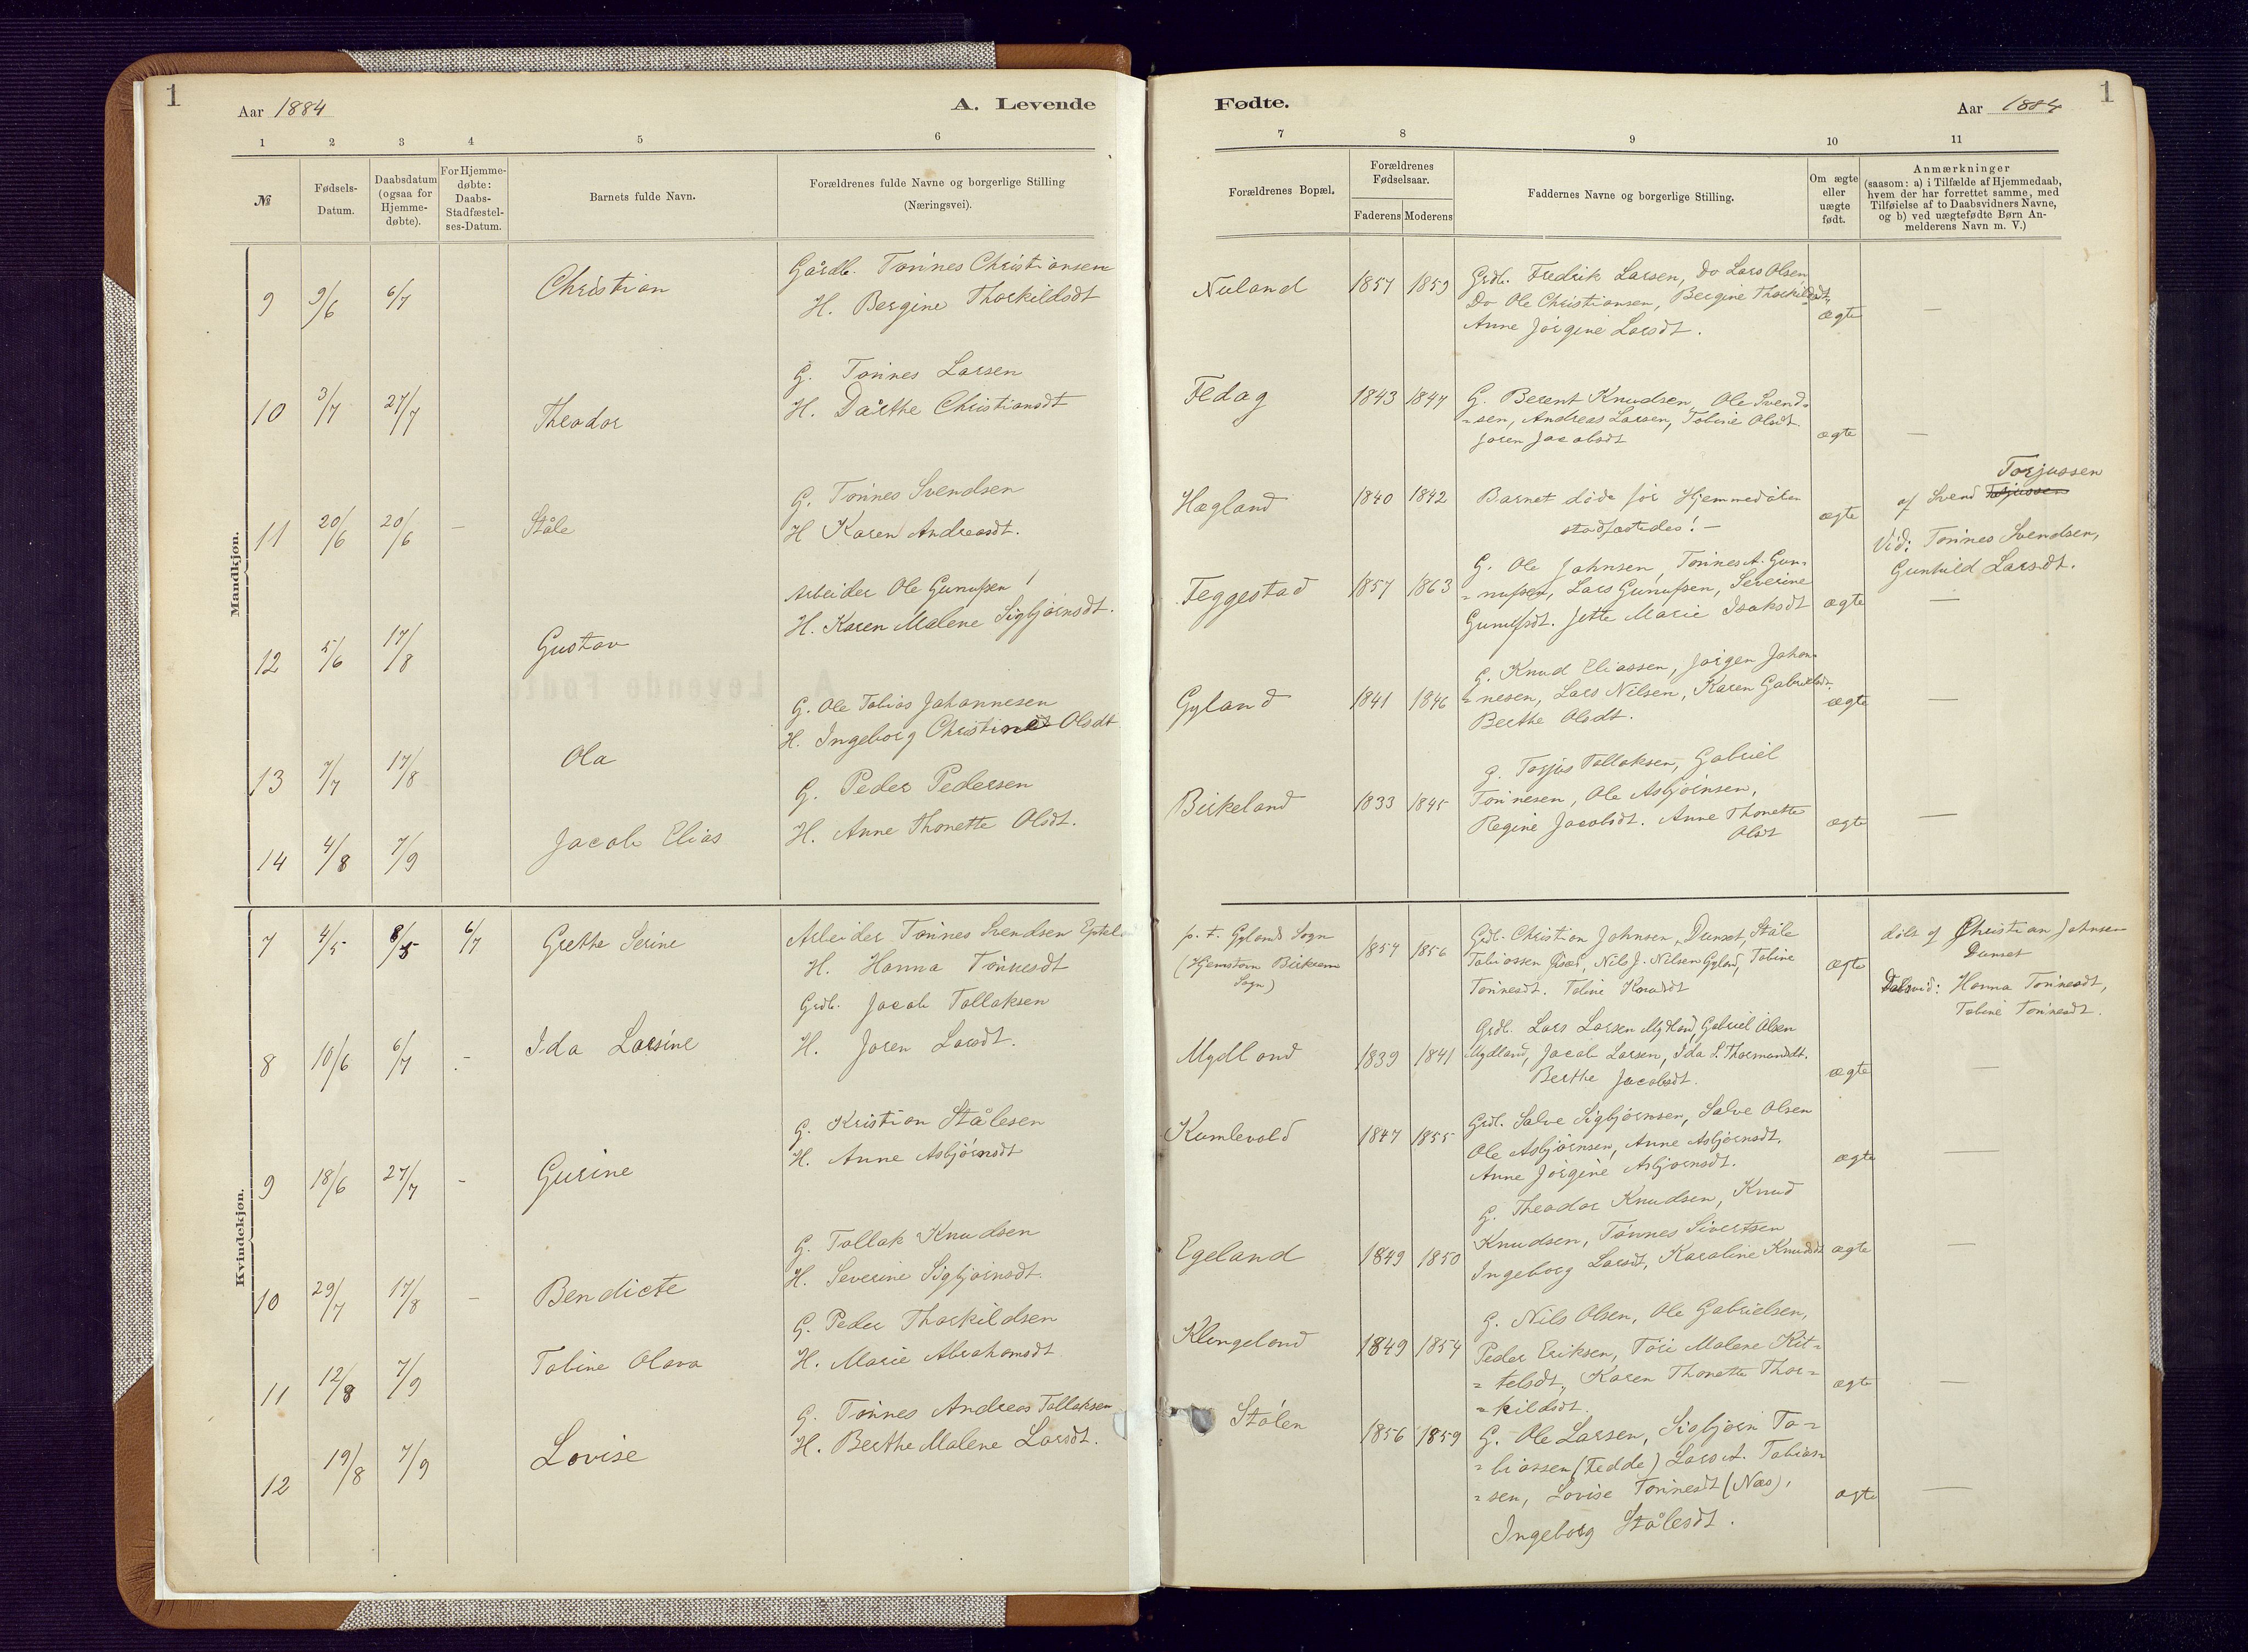 1
Aar 1884
A. Levende
Fødte.
Aar 1884
1
1 2 3 4 5 6 7 8 9 10 11
№
Fødsels-
Datum.
Daabsdatum
(ogsaa for
Hjemme-
døbte).
For Hjemme-
døbte:
Daabs-
Stadfæstel-
ses-Datum.
Barnets fulde Navn.
Forældrenes fulde Navne og borgerlige Stilling
(Næringsvei).
Forældrenes Bopæl.
Forældrenes
Fødselsaar.
Faderens Moderens
Faddernes Navne og borgerlige Stilling.
Om ægte
eller
uægte
født.
Anmærkninger
(saasom: a) i Tilfælde af Hjemmedaab,
hvem der har forrettet samme, med
Tilføielse af to Daabsvidners Navne,
og b) ved uægtefødte Børn An-
melderens Navn m. V.)
Mandkjøn.
9 9/6 6/7 Christian
Gårdb. Tønnes Christiansen
H. Bergine Thorkildsdt
Nuland 1857 1859
Grdb. Fredrik Larsen, Do Lars Olsen
Do Ole Christiansen, Bergine Thorkildsdt,
Anne Jørgine Larsdt.
ægte —
10 3/7 27/7 Theodor
G. Tønnes Larsen
H. Dårthe Christiansdt
Fedag 1843 1847
G. Berent Knudsen, Ole Svend-
-sen, Andreas Larsen, Tobine Olsdt.
Joren Jacobsdt
ægte —
11 20/6 20/6 — Ståle
G. Tønnes Svendsen
H Karen Andreasdt.
Hægland 1840 1842
Barnet døde før Hjemmedåben
stadfæstedes! —
ægte
Torjussen
af Svend Torjussen
Vid: Tønnes Svendsen,
Gunhild Larsdt.
12 5/6 17/8 Gustav
Arbeider Ole Gunufsen
H. Karen Malene Sigbjørnsdt.
Feggestad 1857 1863
G. Ole Johnsen, Tønnes A. Gun-
-nufsen, Lars Gunufsen, Severine
Gunufsdt. Jette Marie Isaksdt
ægte —
13 7/7 17/8 Ola
G. Ole Tobias Johannesen
H. Ingeborg Christine Olsdt
Gyland 1841 1846
G. Knud Eliassen, Jørgen Johan-
-nesen, Lars Nilsen, Karen Gabrielsdt.
Berthe Olsdt.
ægte —
14 4/8 7/9 Jacob Elias
G. Peder Pedersen
H. Anne Thonette Olsdt.
Birkeland 1833 1845
G. Torjus Tollaksen, Gabriel
Tønnesen, Ole Asbjørnsen,
Regine Jacobsdt. Anne Thonette
Olsdt
ægte —
Kvindekjøn.
7 4/5 8/5 6/7 Grethe Serine
Arbeider Tønnes Svendsen
H. Hanna Tønnesdt
p. t. Gylands Sogn
(Hjemstavn
Sogn)
1857 1856
Grdb. Christian Johnsen, Dunset, Ståle
Tobiassen, Nils J. Nilsen Gyland, Tobine
Tønnesdt. Tobine Knudsdt
ægte
døbt af Christian Johnsen
Dunset
Dåbsvid: Hanna Tønnesdt,
Tobine Tønnesdt.
8 10/6 6/7 - Ida Larsine
Grdb. Jacob Tollaksen
H. Joren Larsdt.
Mydland 1839 1841
Grdb. Lars Larsen Mydland, Gabriel Olsen
Mydland, Jacob Larsen, Ida L. Thormundsdt.
Berthe Jacobsdt.
ægte —
9 18/6 27/7 - Gurine
G. Kristian Stålesen
H. Anne Asbjørnsdt
Kumlevold 1847 1855
Grdb. Salve Sigbjørnsen, Salve Olsen
Ole Asbjørnsen, Anne Asbjørnsdt.
Anne Jørgine Asbjørnsdt.
ægte —
10 29/7 17/8 - Bendicte
G. Tollak Knudsen
H. Severine Sigbjørnsdt.
Egeland 1849 1850
G. Theodor Knudsen, Knud
Knudsen, Tønnes Sivertsen
Ingeborg Larsdt, Karoline Knudsdt
ægte —
11 12/8 7/9 Tobine Olava
G. Peder Thorkildsen
H. Marie Abrahamsdt
Klingeland 1849 1854
G. Nils Olsen, Ole Gabrielsen,
Peder Eriksen, Tori Malene Kit-
-telsdt., Karen Thonette Thor-
-kildsdt.
ægte —
12 19/8 7/9 Lovise
G. Tønnes Andreas Tollaksen
H. Berthe Malene Larsdt.
Stølen 1856 1859
G. Ole Larsen, Sigbjørn To-
-biassen (Fedde) Lars A. Tobias-
-sen, Lovise Tønnesdt (Næs),
Ingeborg Stålesdt.
ægte —